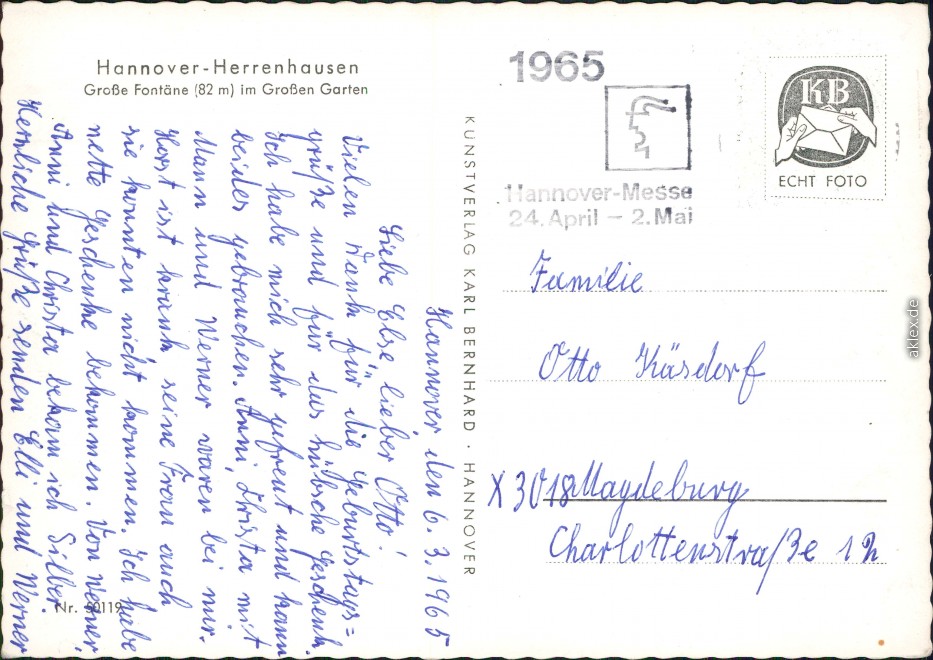 Hannover-Herrenhausen
Große Fontäne (82 m) im Großen Garten
Hannover, den 6.3.1965
Liebe Else lieber Otto!
Vielen Dank für die Geburtstags=
grüße und für das hübsche Geschenk.
Ich habe mich sehr gefreut und kann
beides gebrauchen. Anni, Christa mit
Mann und Werner waren bei mir.
Horst ist krank, seine Frau auch
sie konnten nicht kommen. Ich habe
nette Geschenke bekommen. Von Werner,
Anni und Christa bekam ich Silber.
Herzliche Grüße senden Elli und Werner
Nr. 50119
KUNSTVERLAG KARL BERNHARD · HANNOVER
1965
Hannover-Messe
24. April – 2. Mai
KB
ECHT FOTO
Familie
Otto Käsdorf
X 3018 Magdeburg
Charlottenstraße 12
aklex.de